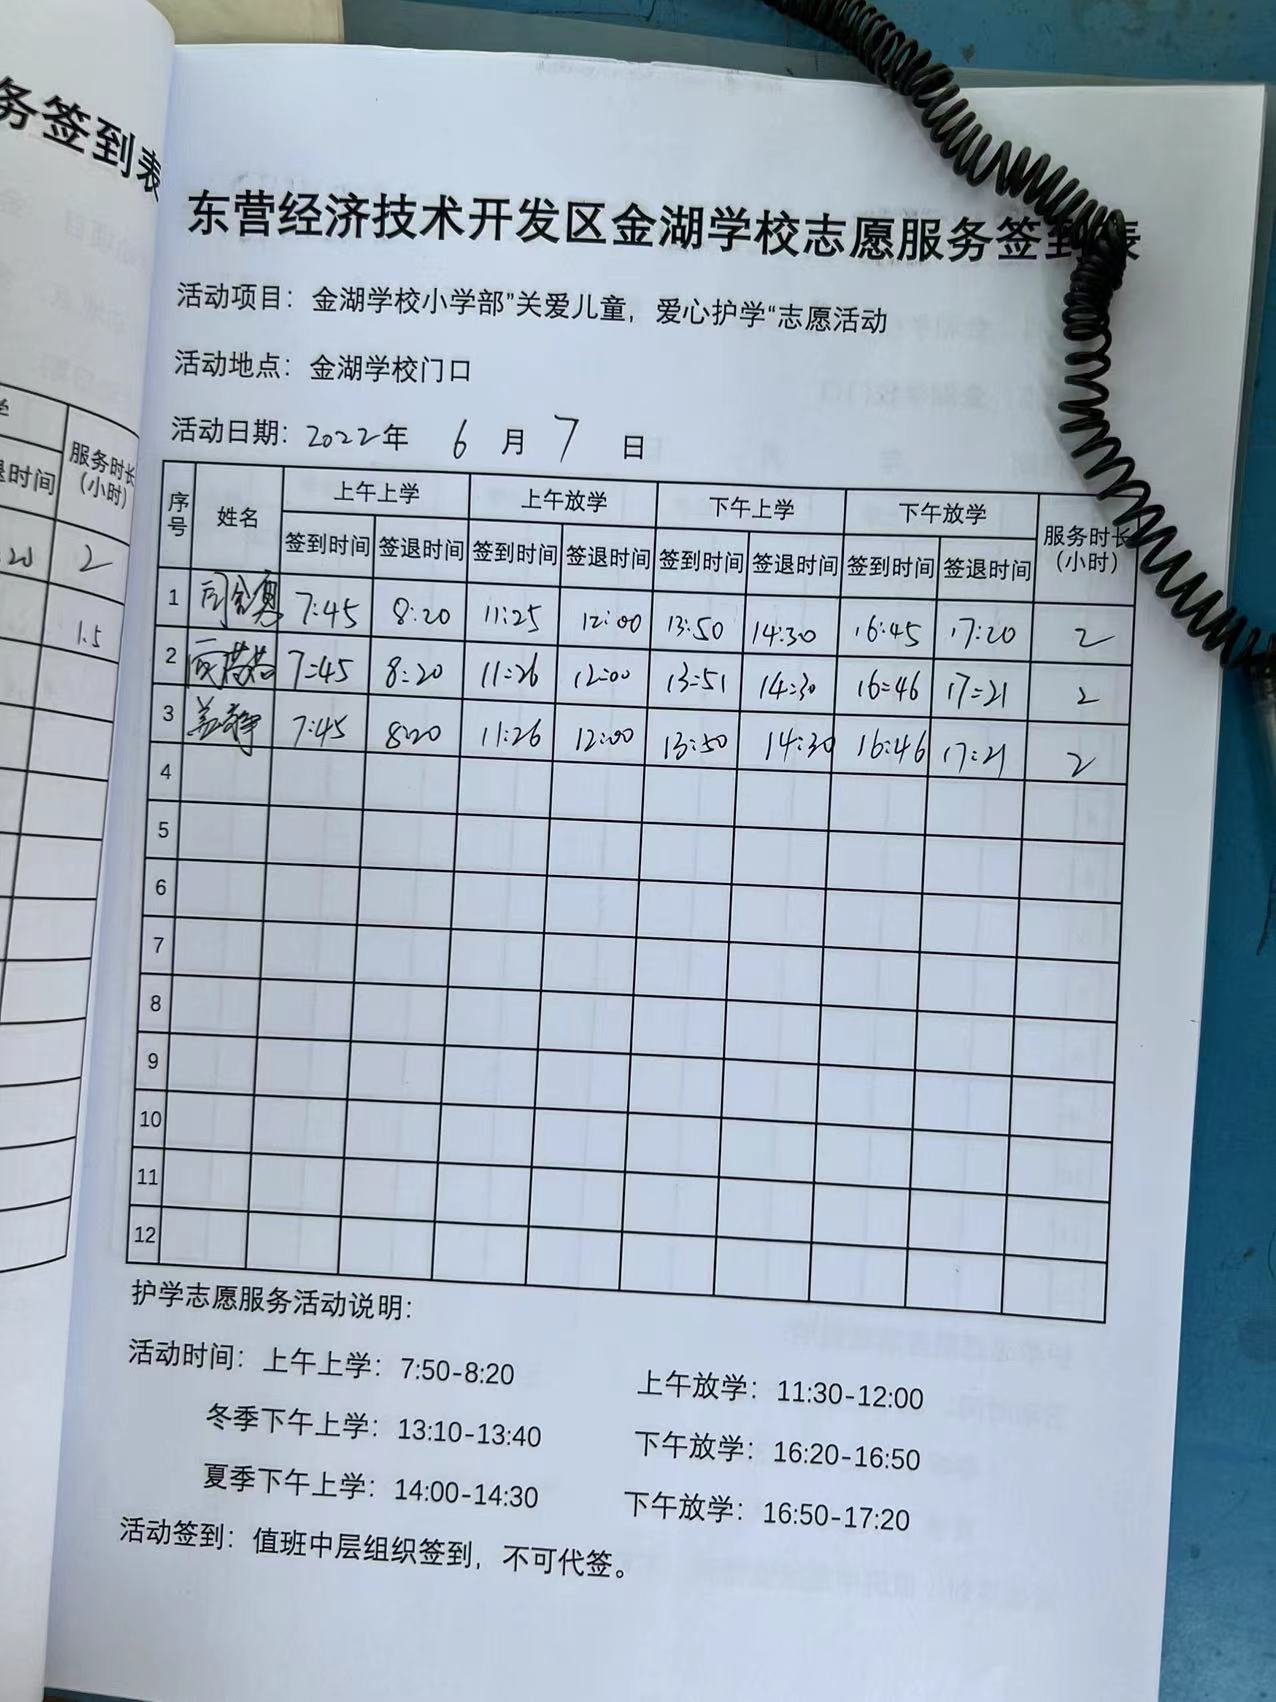 务签到表
学
退时间
服务时长
(小时)
:20
2
1.5
东营经济技术开发区金湖学校志愿服务签到表
活动项目：金湖学校小学部”关爱儿童，爱心护学“志愿活动
活动地点：金湖学校门口
活动日期：2022年 6 月 7 日
序号 姓名 上午上学 上午放学 下午上学 下午放学 服务时长(小时)
签到时间 签退时间 签到时间 签退时间 签到时间 签退时间 签到时间 签退时间
1 7:45 8:20 11:25 12:00 13:50 14:30 16:45 17:20 2
2 7:45 8:20 11:26 12:00 13:51 14:30 16:46 17:21 2
3 7:45 8:20 11:26 12:00 13:50 14:30 16:46 17:21 2
4
5
6
7
8
9
10
11
12
护学志愿服务活动说明：
活动时间：上午上学：7:50-8:20 上午放学：11:30-12:00
冬季下午上学：13:10-13:40 下午放学：16:20-16:50
夏季下午上学：14:00-14:30 下午放学：16:50-17:20
活动签到：值班中层组织签到，不可代签。